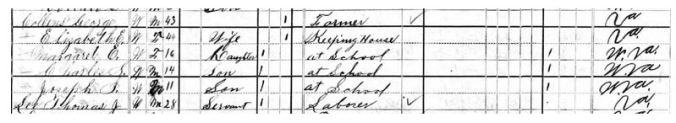 Collins George W M 43 1 Farmer ✓ Va
— Elizabeth E. W F 44 Wife 1 Keeping House Va
— Margaret C. W F 16 Daughter 1 at School 1 W.Va
— Charlie W M 14 Son 1 at School 1 W.Va
— Joseph W M 11 Son 1 at School 1 W.Va
Thomas J W M 28 Servant 1 Laborer ✓ Va